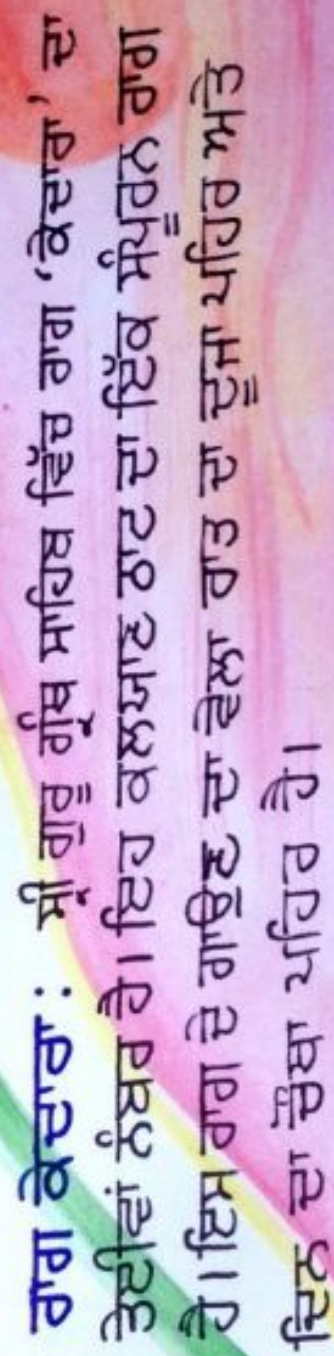 ਰਾਗ ਕੇਦਾਰਾ: ਸ੍ਰੀ ਗੁਰੂ ਗ੍ਰੰਥ ਸਾਹਿਬ ਵਿੱਚ ਰਾਗ 'ਕੇਦਾਰਾ' ਦਾ
ਤੇਈਵਾਂ ਨੰਬਰ ਹੈ। ਇਹ ਕਲਯਾਣ ਠਾਟ ਦਾ ਇੱਕ ਸੰਪੂਰਨ ਰਾਗ
ਹੈ। ਇਸ ਰਾਗ ਦੇ ਗਾਉਣ ਦਾ ਵੇਲਾ ਰਾਤ ਦਾ ਦੂਜਾ ਪਹਿਰ ਅਤੇ
ਦਿਨ ਦਾ ਚੌਥਾ ਪਹਿਰ ਹੈ।